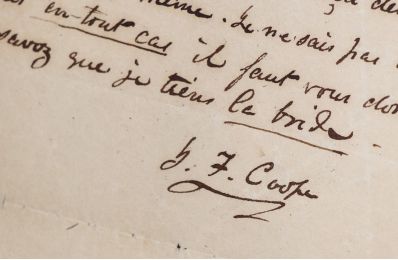 même. Je ne sais pas
en tout cas il faut vous
savez que je tiens la bride.
J. F. Coope